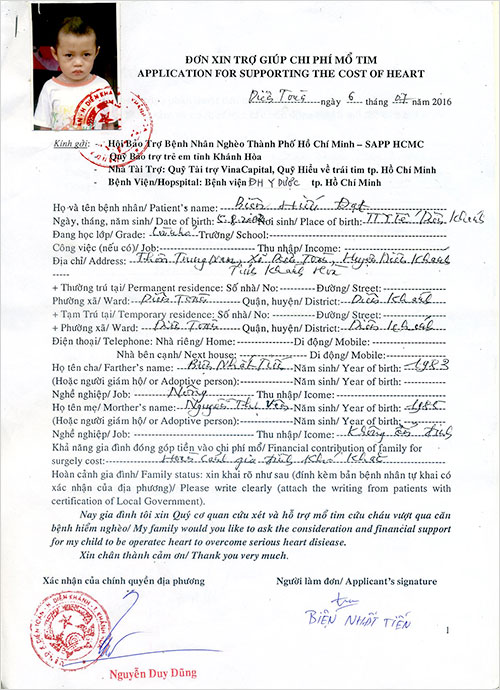 ĐƠN XIN TRỢ GIÚP CHI PHÍ MỔ TIM
APPLICATION FOR SUPPORTING THE COST OF HEART
Diên Toàn ngày 6 tháng 07 năm 2016
Kính gởi: - Hội Bảo Trợ Bệnh Nhân Nghèo Thành Phố Hồ Chí Minh – SAPP HCMC
- Quỹ Bảo trợ trẻ em tỉnh Khánh Hòa
- Nhà Tài Trợ: Quỹ Tài trợ VinaCapital, Quỹ Hiểu về trái tim tp. Hồ Chí Minh
- Bệnh Viện/Hopspital: Bệnh viện ĐH Y DƯỢC tp. Hồ Chí Minh
Họ và tên bệnh nhân/ Patient's name: Biện Hiếu Đạt
Ngày, tháng, năm sinh/ Date of birth: Nơi sinh/ Place of birth: TTYTế Diên Khánh
Đang học lớp/ Grade: Trường/ School:
Công việc (nếu có)/ Job: Thu nhập/ Income:
Địa chỉ/ Address: Thôn Trung Nam, Xã Diên Toàn, Huyện Diên Khánh
Tỉnh Khánh Hòa
+ Thường trú tại/ Permanent residence: Số nhà/ No: Đường/ Street:
Phường xã/ Ward: Diên Toàn Quận, huyện/ District: Diên Khánh
+ Tạm Trú tại/ Temporary residence: Số nhà/ No: Đường/ Street:
+ Phường xã/ Ward: Diên Toàn Quận, huyện/ District: Diên Khánh
Điện thoại/ Telephone: Nhà riêng/ Home: Di động/ Mobile:
Nhà bên cạnh/ Next house: Di động/ Mobile:
Họ tên cha/ Farther's name: Biện Nhất Tiến Năm sinh/ Year of birth: 1983
(Hoặc người giám hộ/ or Adoptive person): Năm sinh/ Year of birth:
Nghề nghiệp/ Job: Nông Thu nhập/ Icome:
Họ tên mẹ/ Morther's name: Nguyễn Thị Năm sinh/ Year of birth: 1985
(Hoặc người giám hộ/ or Adoptive person): Năm sinh/ Year of birth:
Nghề nghiệp/ Job: Thu nhập/ Icome: Không ổn định
Khả năng gia đình đóng góp tiền vào chi phí mổ/ Financial contribution of family for
surgery cost: Hoàn cảnh gia đình khó khăn
Hoàn cảnh gia đình/ Family status: xin khai rõ như sau (đính kèm bản bệnh nhân tự khai có
xác nhận của địa phương)/ Please write clearly (attach the writing from patients with
certification of Local Government).
Nay gia đình tôi xin Quý cơ quan cứu xét và hỗ trợ mổ tim cứu cháu vượt qua căn
bệnh hiểm nghèo/ My family would you like to ask the consideration and financial support
for my child to be operatec heart to overcome serious heart disiease.
Xin chân thành cảm ơn/ Thank you very much.
Xác nhận của chính quyền địa phương Người làm đơn/ Applicant's signature
BIỆN NHẤT TIẾN
Nguyễn Duy Dũng
1